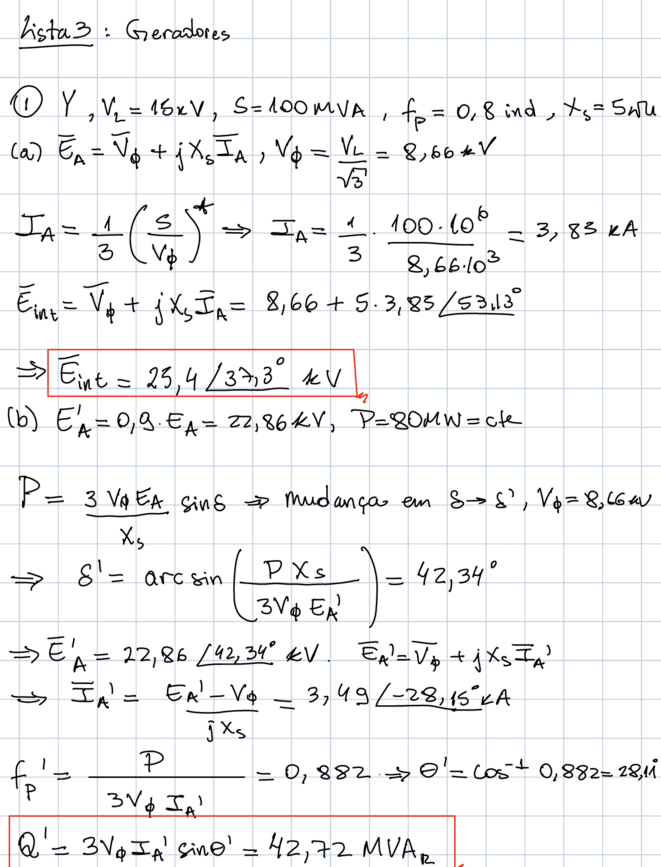 Lista 3 : Geradores
① Y, V_L = 15 kV, S = 100 MVA, f_p = 0,8 ind, X_s = 5
(a) Ē_A = V̄_φ + jX_s Ī_A, V_φ = V_L/√3 = 8,66 kV
I_A = 1/3 (S/V_φ)^* ⇒ I_A = 1/3 · 100·10^6/8,66·10^3 = 3,85 kA
Ē_int = V̄_φ + jX_s Ī_A = 8,66 + 5·3,85 /53,13°
⇒ Ē_int = 25,4 /37,3° kV
(b) E'_A = 0,9·E_A = 22,86 kV, P = 80MW = cte
P = 3 V_φ E_A/X_s sinδ ⇒ mudança em δ → δ', V_φ = 8,66 kV
⇒ δ' = arcsin (P X_s/3V_φ E_A') = 42,34°
⇒ Ē'_A = 22,86 /42,34° kV. Ē_A' = V̄_φ + jX_s Ī_A'
⇒ Ī_A' = E_A' - V_φ/jX_s = 3,49 /-28,15° kA
f_p' = P/3V_φ I_A' = 0,882 ⇒ θ' = cos^-1 0,882 = 28,11
Q' = 3V_φ I_A' sinθ' = 42,72 MVA_R